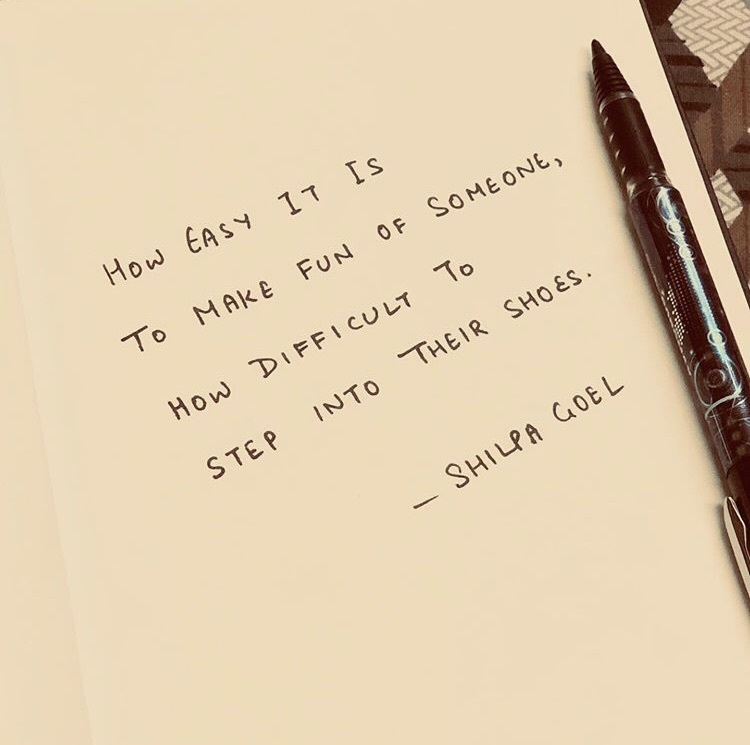 HOW EASY IT IS
TO MAKE FUN OF SOMEONE,
HOW DIFFICULT TO
STEP INTO THEIR SHOES.
— SHILPA GOEL